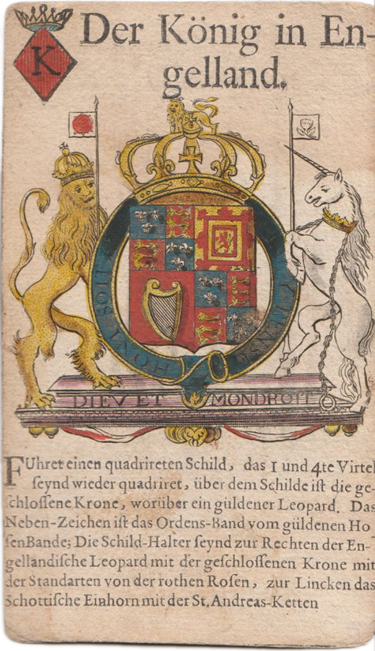 K
Der König in En-
gelland.
HONI SOIT
DIEV ET MONDROIT
FUhret einen quadrireten Schild, das 1 und 4te Virtel
seynd wieder quadriret, über dem Schilde ist die ge-
schlossene Krone, worüber ein güldener Leopard. Das
Neben-Zeichen ist das Ordens-Band vom güldenen Ho
senBande; Die Schild-Halter seynd zur Rechten der En-
gelländische Leopard mit der geschlossenen Krone mit
der Standarten von der rothen Rosen, zur Lincken das
Schottische Einhorn mit der St. Andreas-Ketten